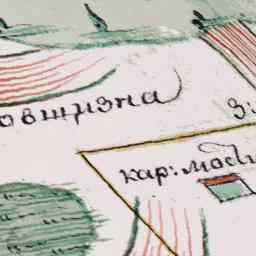 овщизна
З:
кар: мос